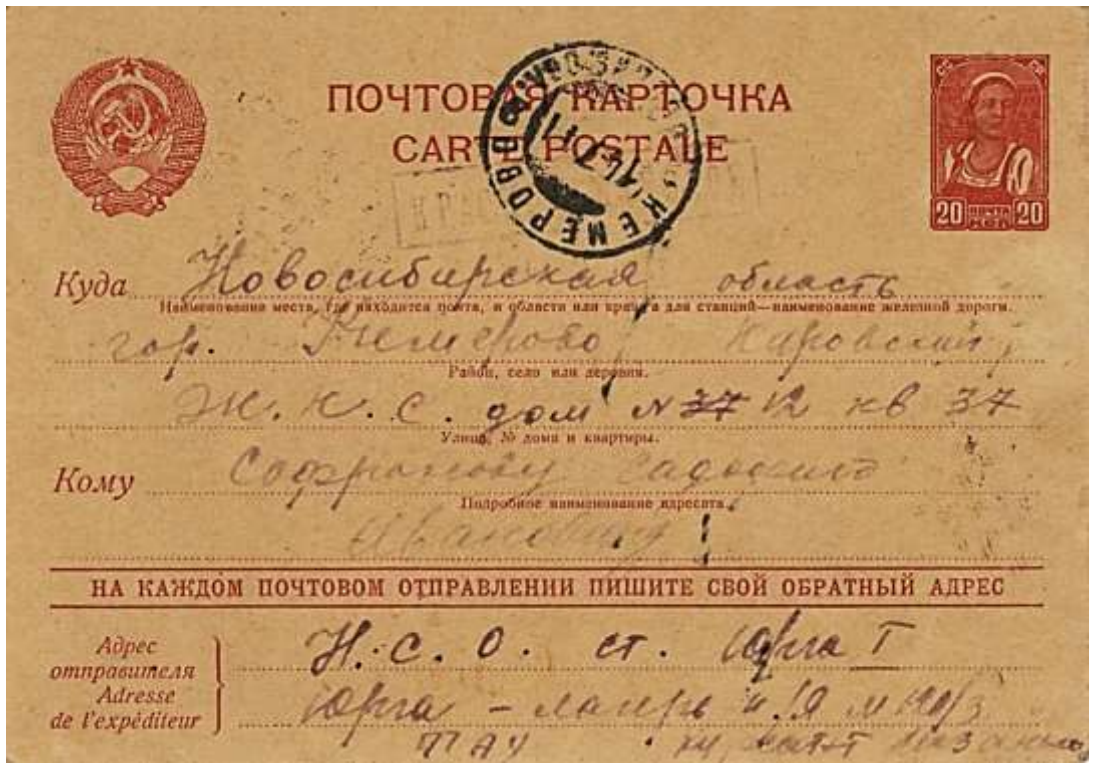 ПОЧТОВАЯ КАРТОЧКА
CARTE POSTALE
СС СР
20 ПОЧТА 20
КЕМЕРОВО
14 7 11
Куда Новосибирская область
Наименование места, где находится почта, и области или края, а для станций—наименование железной дороги.
гор. Кемерово Кировский
Район, село или деревня.
Ж. К. С. дом № 37 12 кв 37
Улица, № дома и квартиры.
Кому Софронову
Подробное наименование адресата.
Ивановичу
НА КАЖДОМ ПОЧТОВОМ ОТПРАВЛЕНИИ ПИШИТЕ СВОЙ ОБРАТНЫЙ АДРЕС
Адрес
отправителя
Adresse
de l'expéditeur
Н. С. О. ст. Юрга I
Юрга - лагерь п. Я
ПАУ